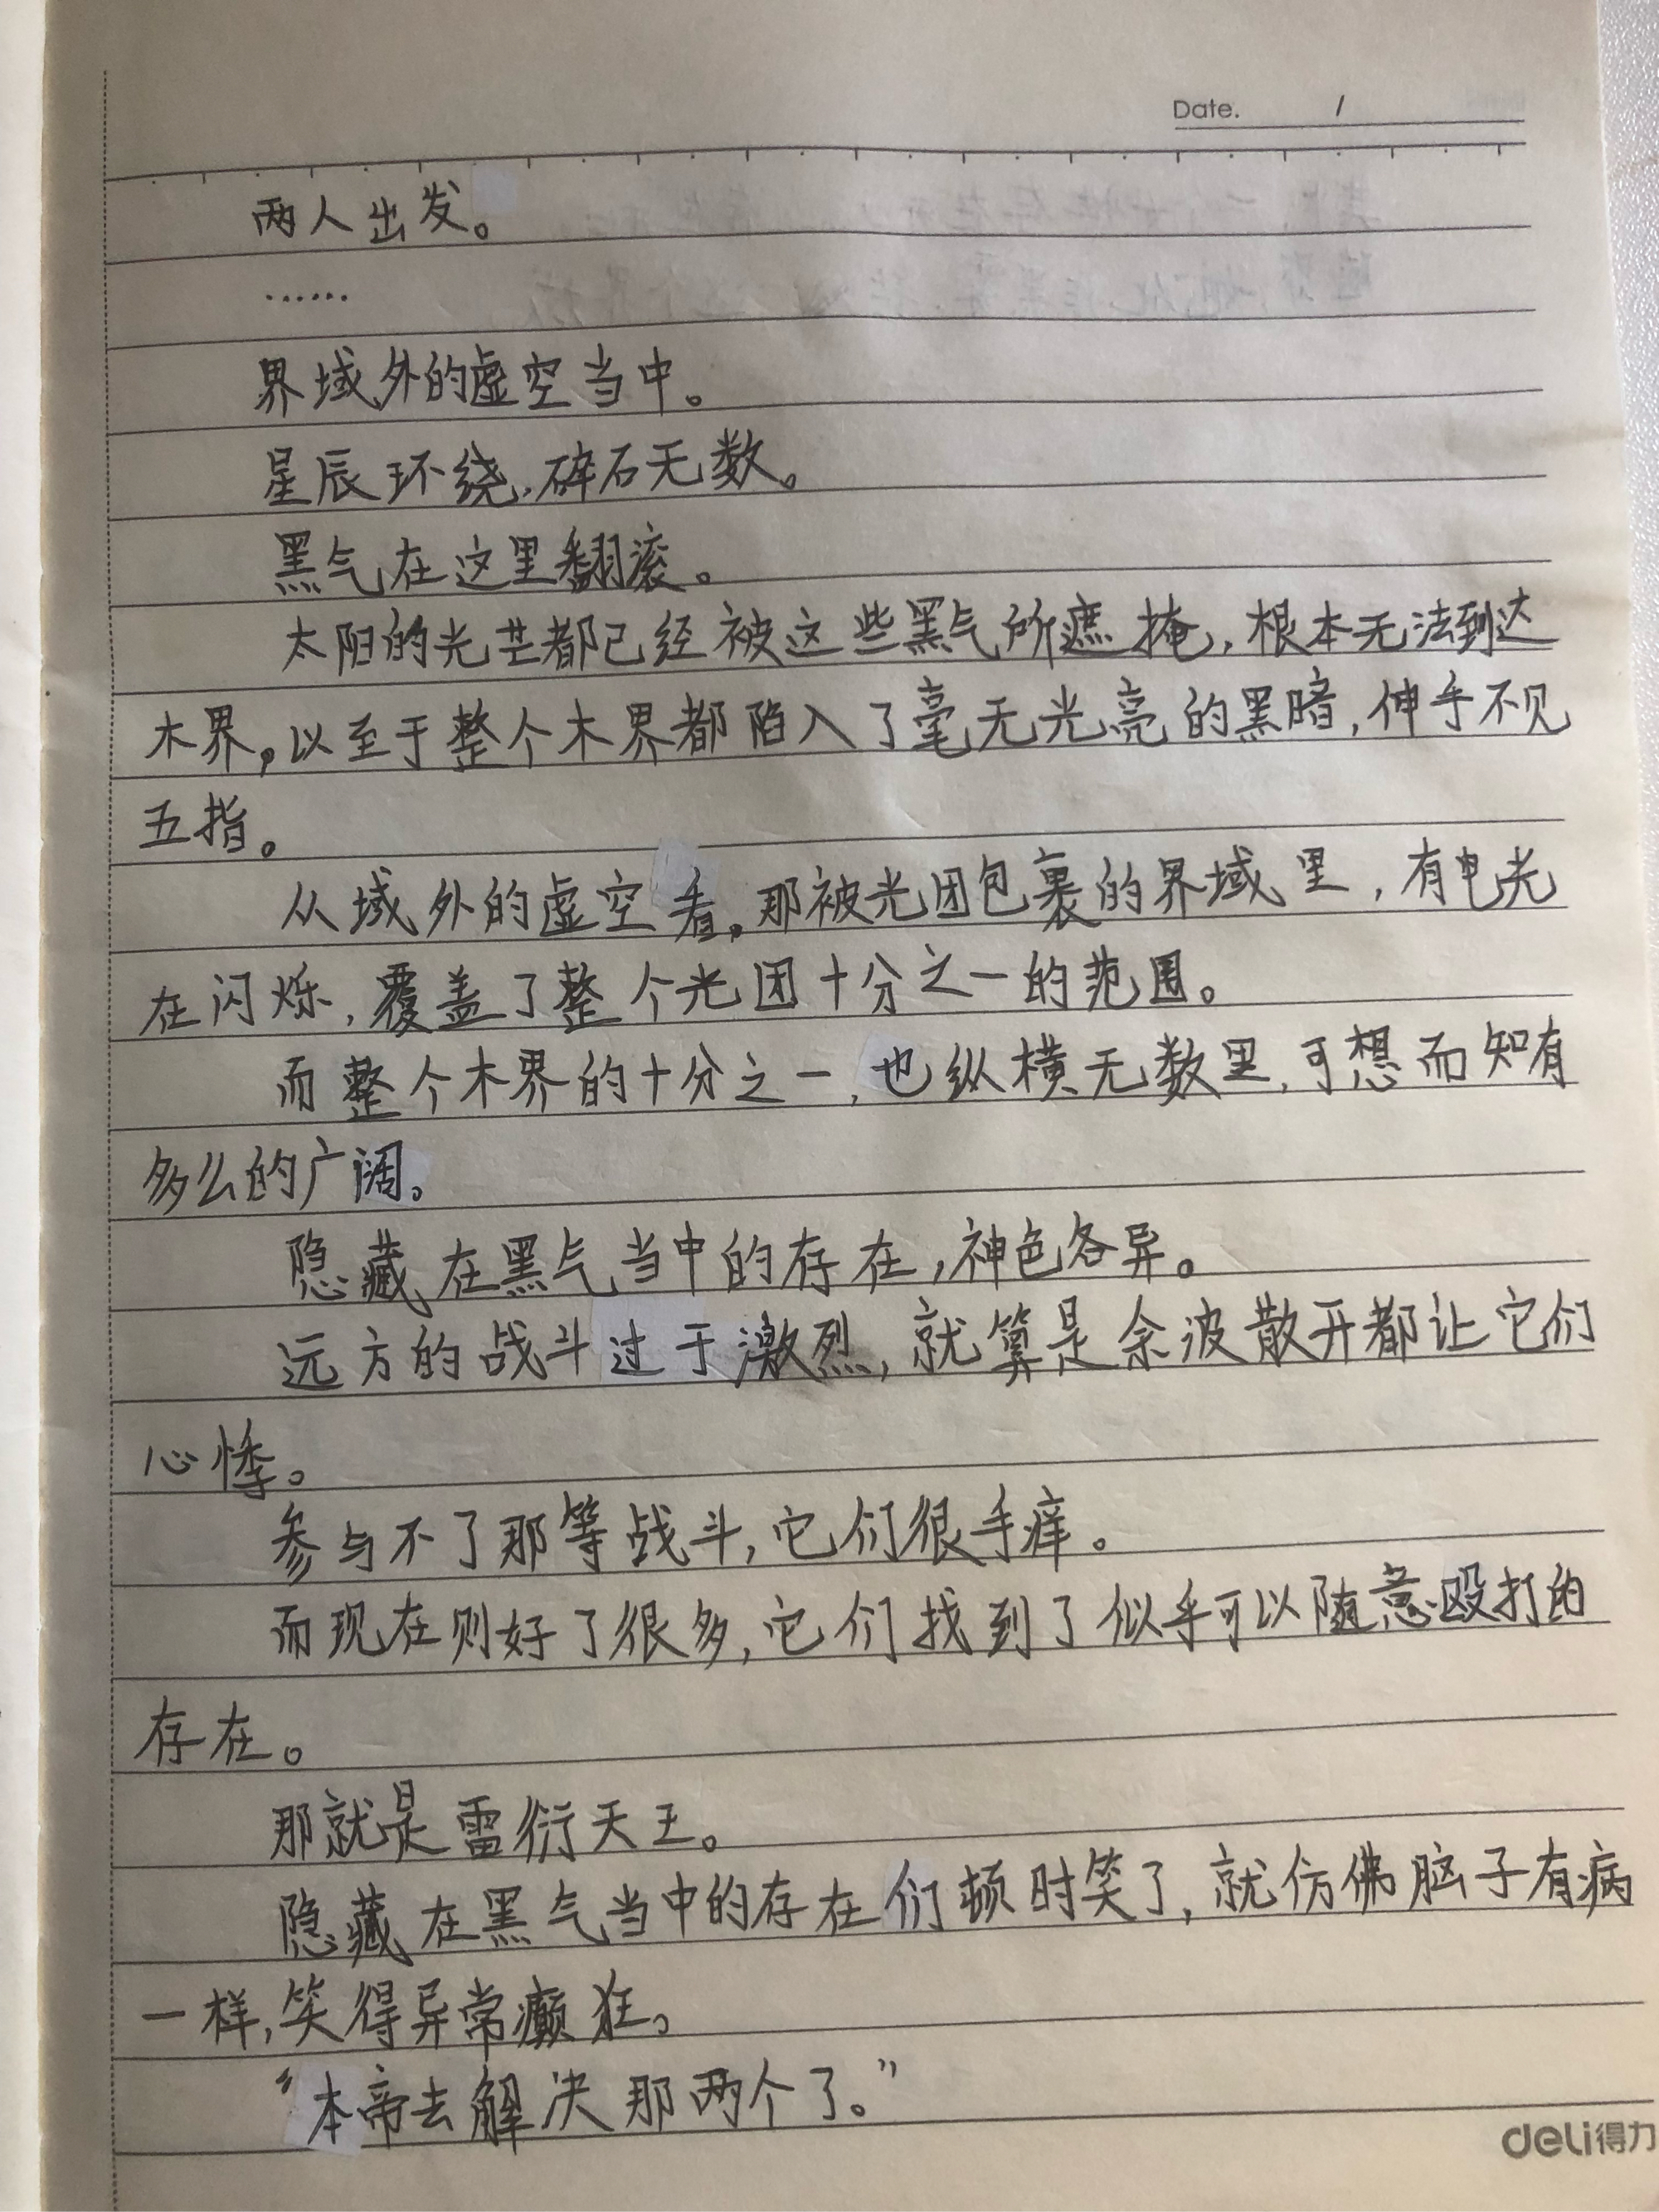 Date. /
两人出发。
……
界域外的虚空当中。
星辰环绕,碎石无数。
黑气在这里翻滚。
太阳的光芒都已经被这些黑气所遮掩,根本无法到达
木界,以至于整个木界都陷入了毫无光亮的黑暗,伸手不见
五指。
从域外的虚空看,那被光团包裹的界域里,有电光
在闪烁,覆盖了整个光团十分之一的范围。
而整个木界的十分之一,也纵横无数里,可想而知有
多么的广阔。
隐藏在黑气当中的存在,神色各异。
远方的战斗过于激烈,就算是余波散开都让它们
心悸。
参与不了那等战斗,它们很手痒。
而现在则好了很多,它们找到了似乎可以随意殴打的
存在。
那就是雷衍天王。
隐藏在黑气当中的存在们顿时笑了,就仿佛脑子有病
一样,笑得异常癫狂。
“本帝去解决那两个了。”
deli得力